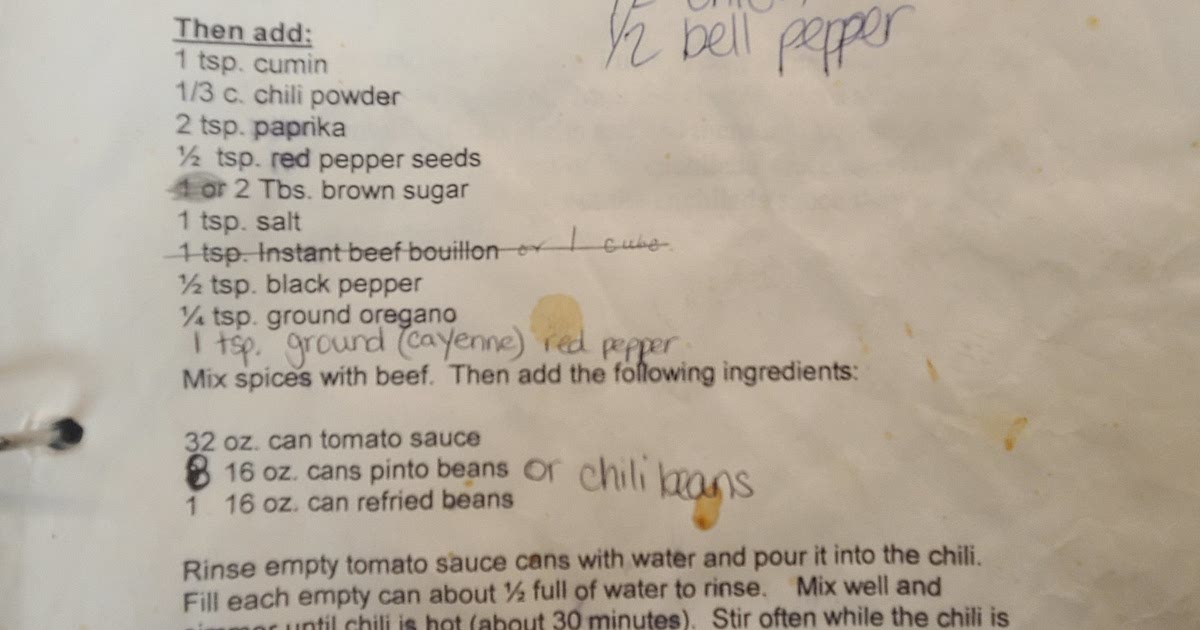 ½ bell pepper
Then add:
1 tsp. cumin
1/3 c. chili powder
2 tsp. paprika
½ tsp. red pepper seeds
1 or 2 Tbs. brown sugar
1 tsp. salt
1 tsp. Instant beef bouillon or 1 cube
½ tsp. black pepper
¼ tsp. ground oregano
1 tsp. ground (cayenne) red pepper
Mix spices with beef. Then add the following ingredients:
32 oz. can tomato sauce
16 oz. cans pinto beans or chili beans
1 16 oz. can refried beans
Rinse empty tomato sauce cans with water and pour it into the chili.
Fill each empty can about ½ full of water to rinse. Mix well and
until chili is hot (about 30 minutes). Stir often while the chili is